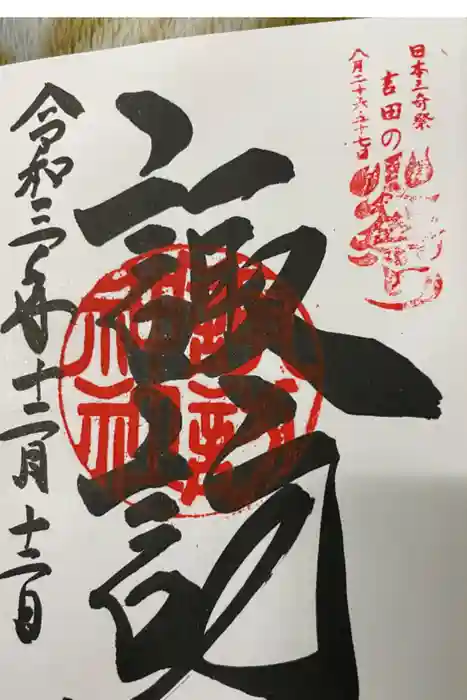 日本三奇祭
吉田の火祭り
八月二十六二十七日
諏訪
令和三年十二月十二日